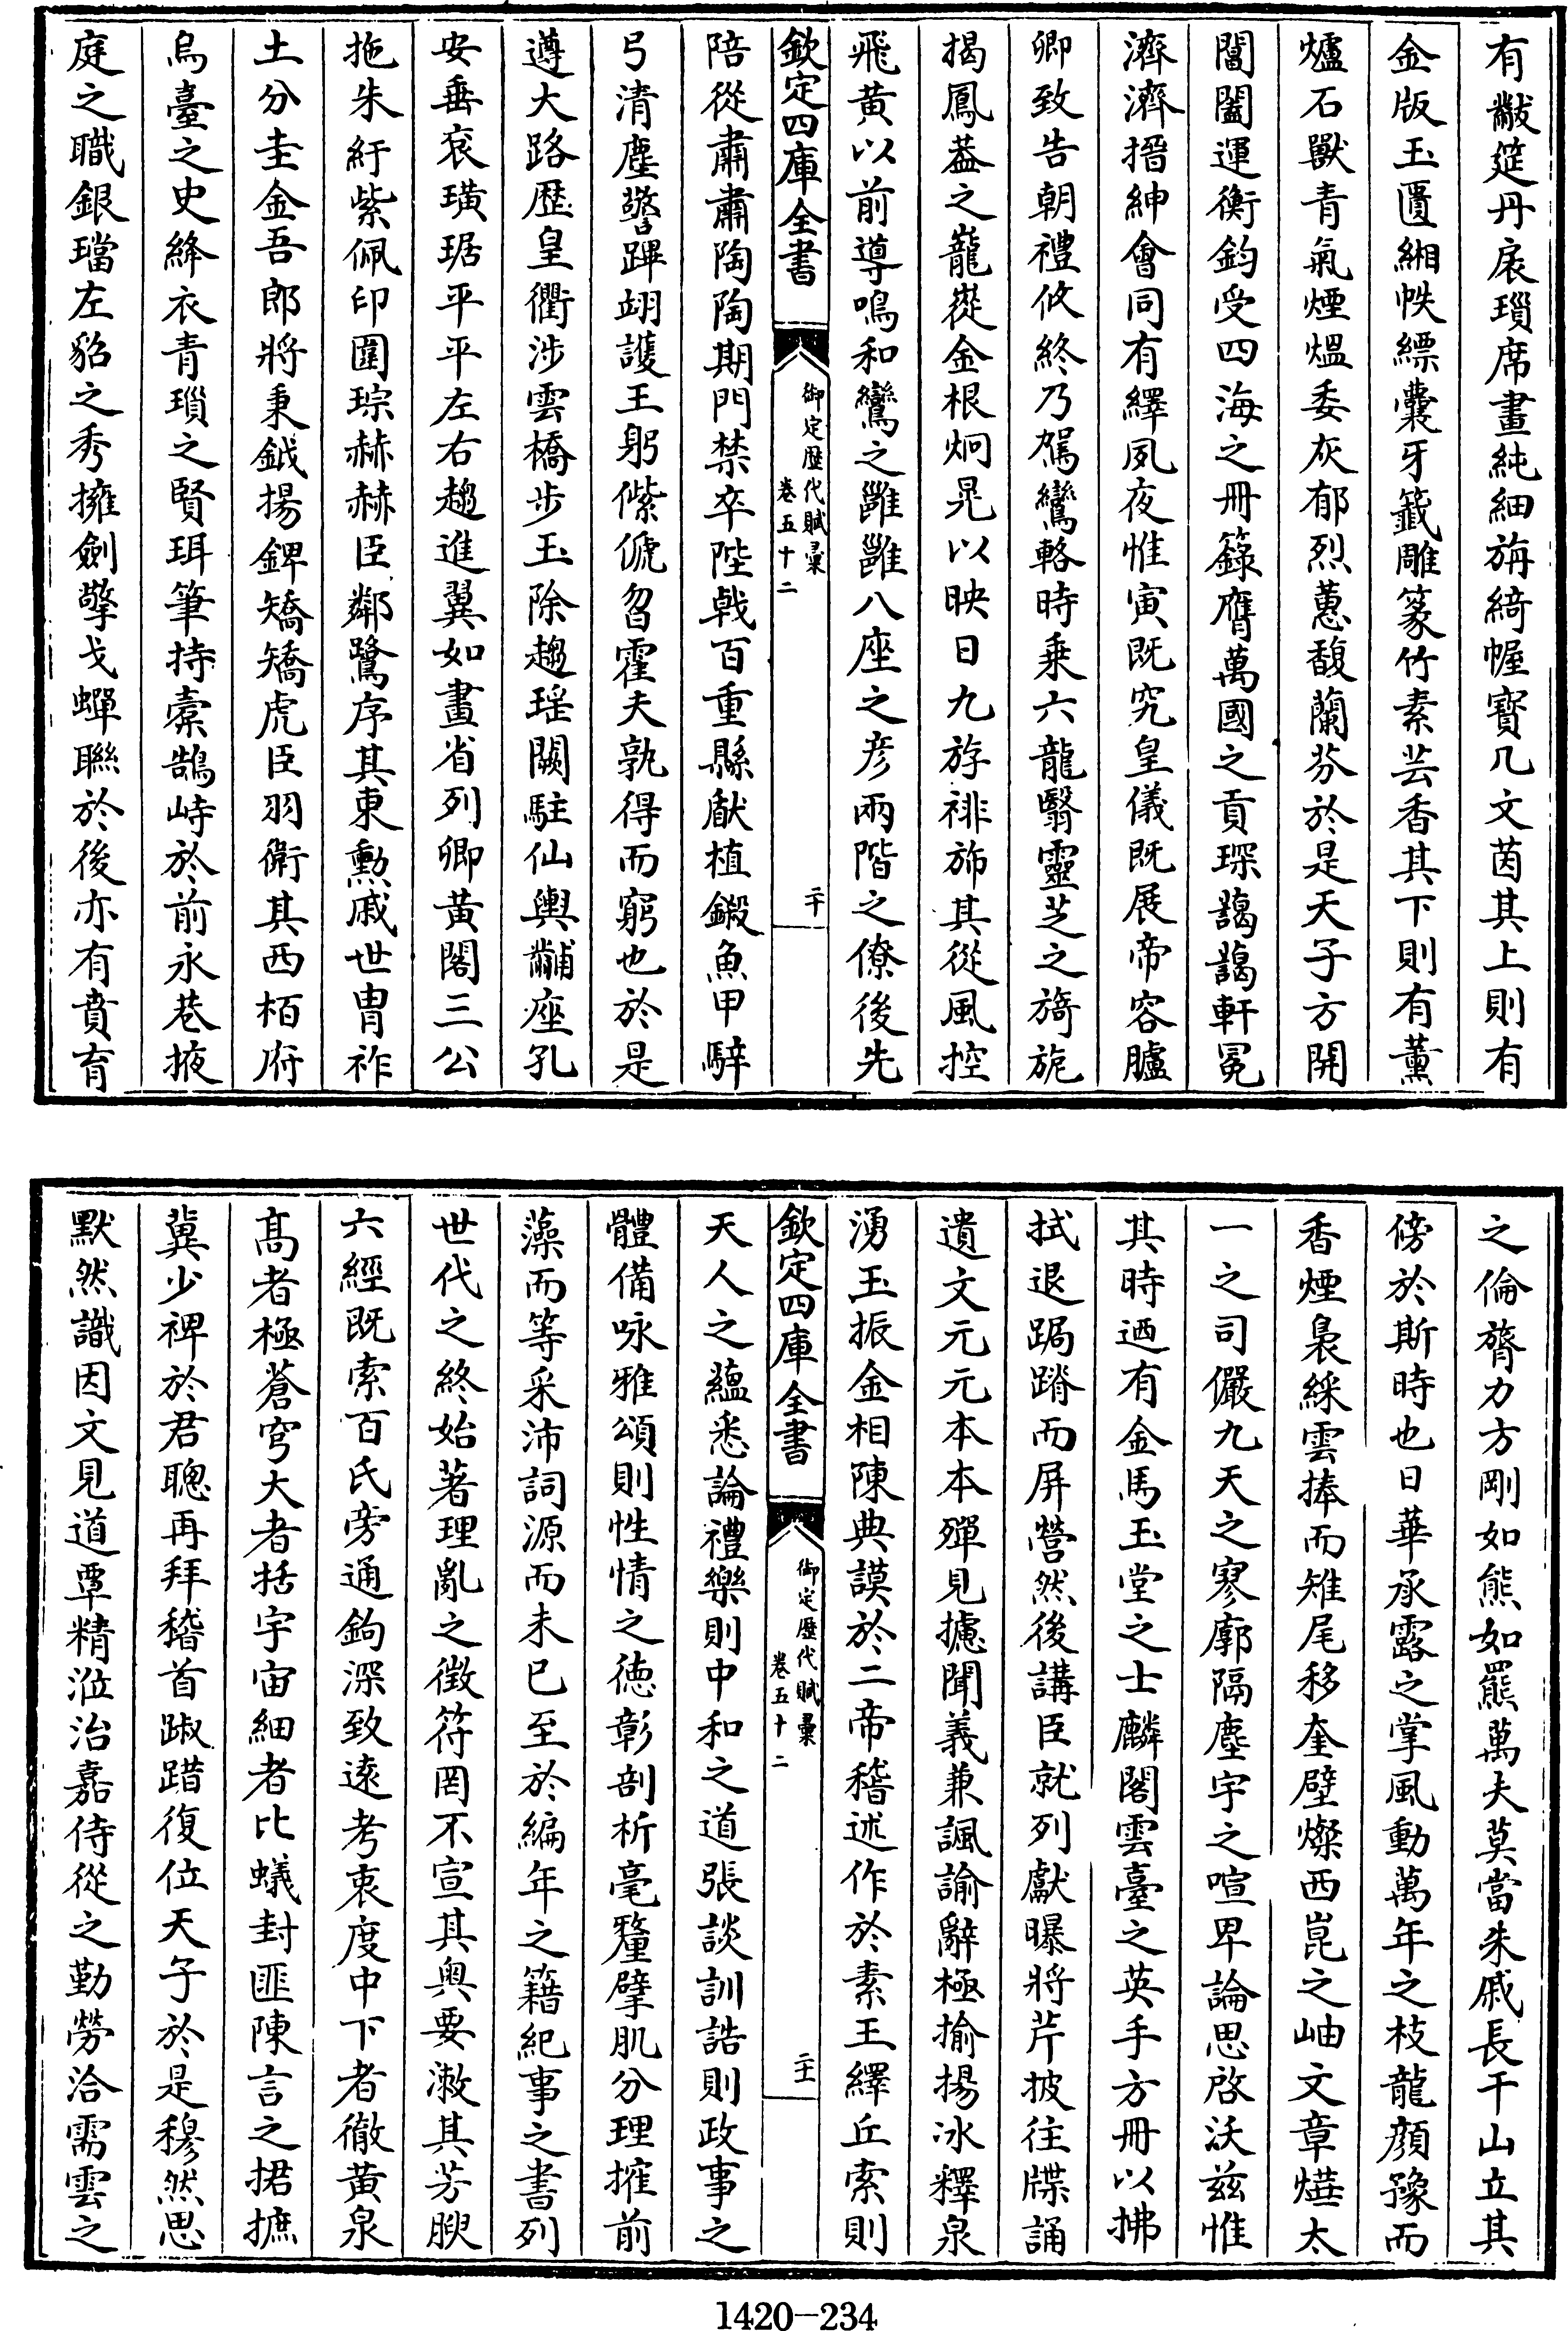 有黻筵丹扆瑣席畫純細旃綺幄寳几文茵其上則有
金版玉匱緗帙縹囊牙籤雕篆竹素芸香其下則有薰
爐石獸青氣煙熅委灰郁烈蕙馥蘭芬於是天子方開
閶闔運衡鈞受四海之冊籙膺萬國之貢琛藹藹軒冕
濟濟搢紳會同有繹夙夜惟寅既究皇儀既展帝容臚
卿致告朝禮攸終乃駕鸞輅時乗六龍翳靈芝之旖旎
揭鳳葢之巃嵸金根炯晃以映日九斿裶斾其從風控
飛黃以前導鳴和鸞之雝雝八座之彦兩階之僚後先
欽定四庫全書
御定歴代賦彙
卷五十二
二十
陪從肅肅陶陶期門禁卒陛戟百重縣猒植鎩魚甲騂
弓清塵警蹕翊䕶王躬儵俿曶霍夫孰得而窮也於是
遵大路歴皇衢涉雲橋步玉除趨瑶闕駐仙輿黼座孔
安垂衮璜琚平平左右趨進翼如畫省列卿黃閣三公
拖朱紆紫佩印圍琮赫赫臣鄰鷺序其東勲戚世胄祚
土分圭金吾郎將秉鉞揚錍矯矯虎臣羽衛其西栢府
烏臺之史絳衣青瑣之賢珥筆持橐鵠峙於前永巷掖
庭之職銀璫左貂之秀擁劍擎戈蟬聯於後亦有賁育
之倫膂力方剛如熊如羆萬夫莫當朱戚長干山立其
傍於斯時也日華承露之掌風動萬年之枝龍顔豫而
香煙裊綵雲捧而雉尾移奎壁燦西崑之岫文章爗太
一之司儼九天之寥廓隔塵宇之喧卑論思啓沃兹惟
其時迺有金馬玉堂之士麟閣雲臺之英手方冊以拂
拭退跼蹐而屏營然後講臣就列獻曝將芹披往牒誦
遺文元元本本殫見攄聞義兼諷諭辭極揄揚冰釋泉
湧玉振金相陳典謨於二帝稽述作於素王繹丘索則
欽定四庫全書
御定歴代賦彙
卷五十二
二十一
天人之蘊悉論禮樂則中和之道張談訓誥則政事之
體備咏雅頌則性情之徳彰剖析毫釐擘肌分理摧前
藻而等采沛詞源而未已至於編年之籍紀事之書列
世代之終始著理亂之徴符罔不宣其奥要漱其芳腴
六經既索百氏旁通鉤深致逺考衷度中下者徹黃泉
髙者極蒼穹大者括宇宙細者比蟻封匪陳言之捃摭
冀少裨於君聰再拜稽首踧踖復位天子於是穆然思
默然識因文見道覃精涖治嘉侍從之勤勞洽需雲之
1420-234